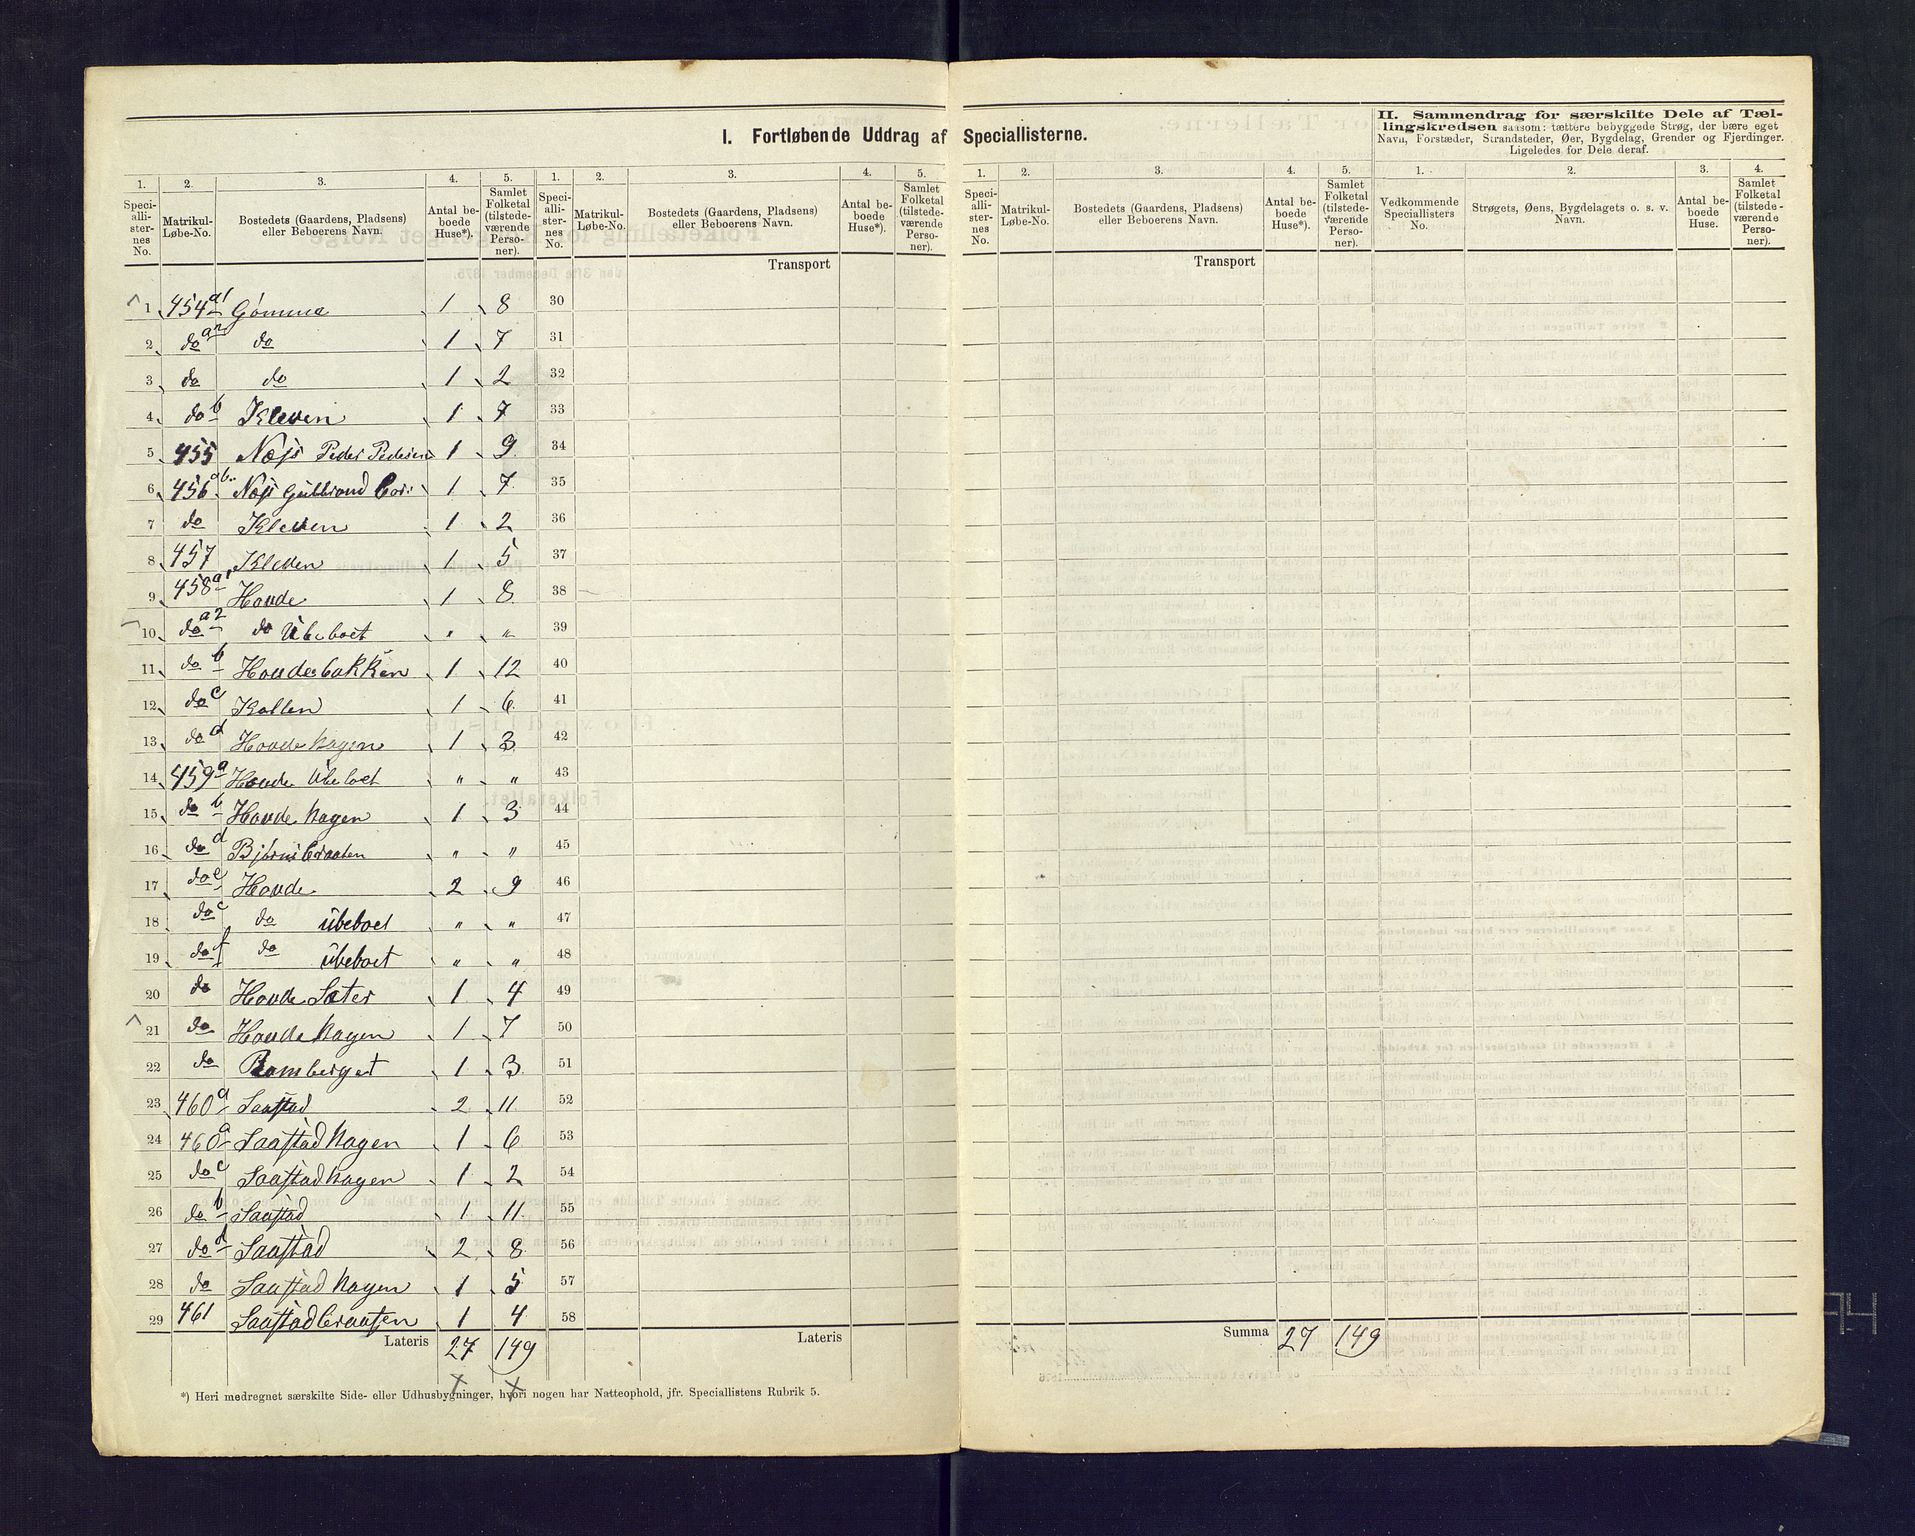 I. Fortløbende Uddrag af Speciallisterne.
II. Sammendrag for særskilte Dele af Tæl-
lingskredsen saasom: tættere bebyggede Strøg, der bære eget
Navn, Forstæder, Strandsteder, Øer, Bygdelag, Grender og Fjerdinger.
Ligeledes for Dele deraf.
1. Speciallisternes No. 2. Matrikul-Løbe-No. 3. Bostedets (Gaardens, Pladsens) eller Beboerens Navn. 4. Antal beboede Huse*). 5. Samlet Folketal (tilstedeværende Personer).
1. Speciallisternes No. 2. Matrikul-Løbe-No. 3. Bostedets (Gaardens, Pladsens) eller Beboerens Navn. 4. Antal beboede Huse*). 5. Samlet Folketal (tilstedeværende Personer).
1. Speciallisternes No. 2. Matrikul-Løbe-No. 3. Bostedets (Gaardens, Pladsens) eller Beboerens Navn. 4. Antal beboede Huse*). 5. Samlet Folketal (tilstedeværende Personer).
1. Vedkommende Speciallisters No. 2. Strøgets, Øens, Bygdelagets o. s. v. Navn. 3. Antal beboede Huse. 4. Samlet Folketal (tilstedeværende Personer).
Transport Transport
1 454 a1 Gomma 1 8 30
2 do a2 do 1 7 31
3 do do 1 2 32
4 do b Kleven 1 7 33
5 455 Næss Peder Pedersen 1 9 34
6 456 ab Næss Gulbrand 1 7 35
7 do Kleven 1 2 36
8 457 Kleven 1 5 37
9 458 a1 Hovde 1 8 38
10 do a2 do Ubeboet " " 39
11 do b Hovdesbakken 1 12 40
12 do c Kollen 1 6 41
13 do d Hovdehagen 1 3 42
14 459 a Hovde Ubeboet " " 43
15 do b Hovdehagen 1 3 44
16 do d Bjørnsbraaten " " 45
17 do e Hovde 2 9 46
18 do c do Ubeboet " " 47
19 do f do Ubeboet " " 48
20 do Hovde Sæter 1 4 49
21 do Hovdehagen 1 7 50
22 do Ramberget 1 3 51
23 460 a Saastad 2 11 52
24 460 a Saastadhagen 1 6 53
25 do c Saastadhagen 1 2 54
26 do b Saastad 1 11 55
27 do d Saastad 2 8 56
28 do Saastadhagen 1 5 57
29 461 Saastadbraaten 1 4 58
Lateris 27 149 Lateris Summa 27 149
*) Heri medregnet særskilte Side- eller Udhusbygninger, hvori nogen har Natteophold, jfr. Speciallistens Rubrik 5.